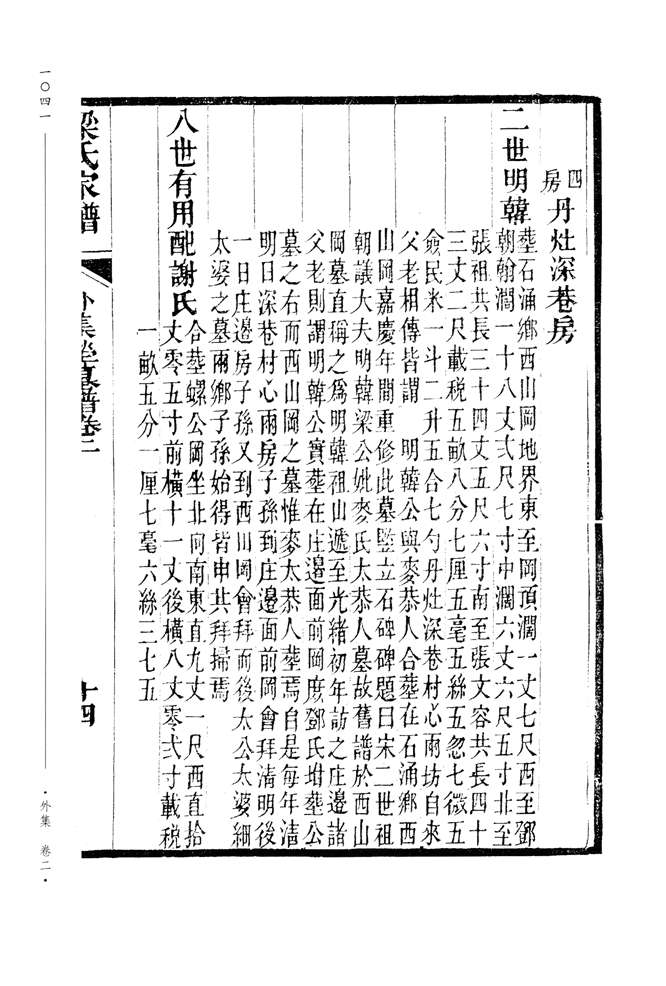 四房丹灶深巷房
二世明韓
塟石涌鄉西山岡地界東至岡頂濶一丈七尺西至鄧
朝翰濶一十八丈弍尺七寸中濶六丈六尺五寸北至
張祖共長三十四丈五尺六寸南至張文容共長四十
三丈二尺載税五畝八分七厘五毫五絲五忽七微五
僉民米一斗二升五合七勺丹灶深巷村心兩坊自來
父老相傳皆謂　明韓公與麥恭人合塟在石涌鄉西
山岡嘉慶年間重修此墓豎立石碑碑題曰宋二世祖
朝議大夫明韓梁公妣麥氏太恭人墓故舊譜於西山
岡墓直稱之爲明韓祖山遞至光緒初年訪之庄邊諸
父老則謂明韓公實塟在庄邊面前岡庶鄧氏坿塟公
墓之右而西山岡之墓惟麥太恭人塟焉自是每年清
明日深巷村心兩房子孫到庄邊面前岡會拜清明後
一日庄邊房子孫又到西山岡會拜而後太公太婆細
太婆之墓兩鄉子孫始得皆申共拜掃焉
八世有用配謝氏
合塟螺公岡坐北向南東直九丈一尺西直拾
丈零五寸前橫十一丈後橫八丈零弍寸載税
一畝五分一厘七毫六絲三七五
梁氏家譜
外集塋墓譜卷二
十四
一〇四一
・外集　卷二・